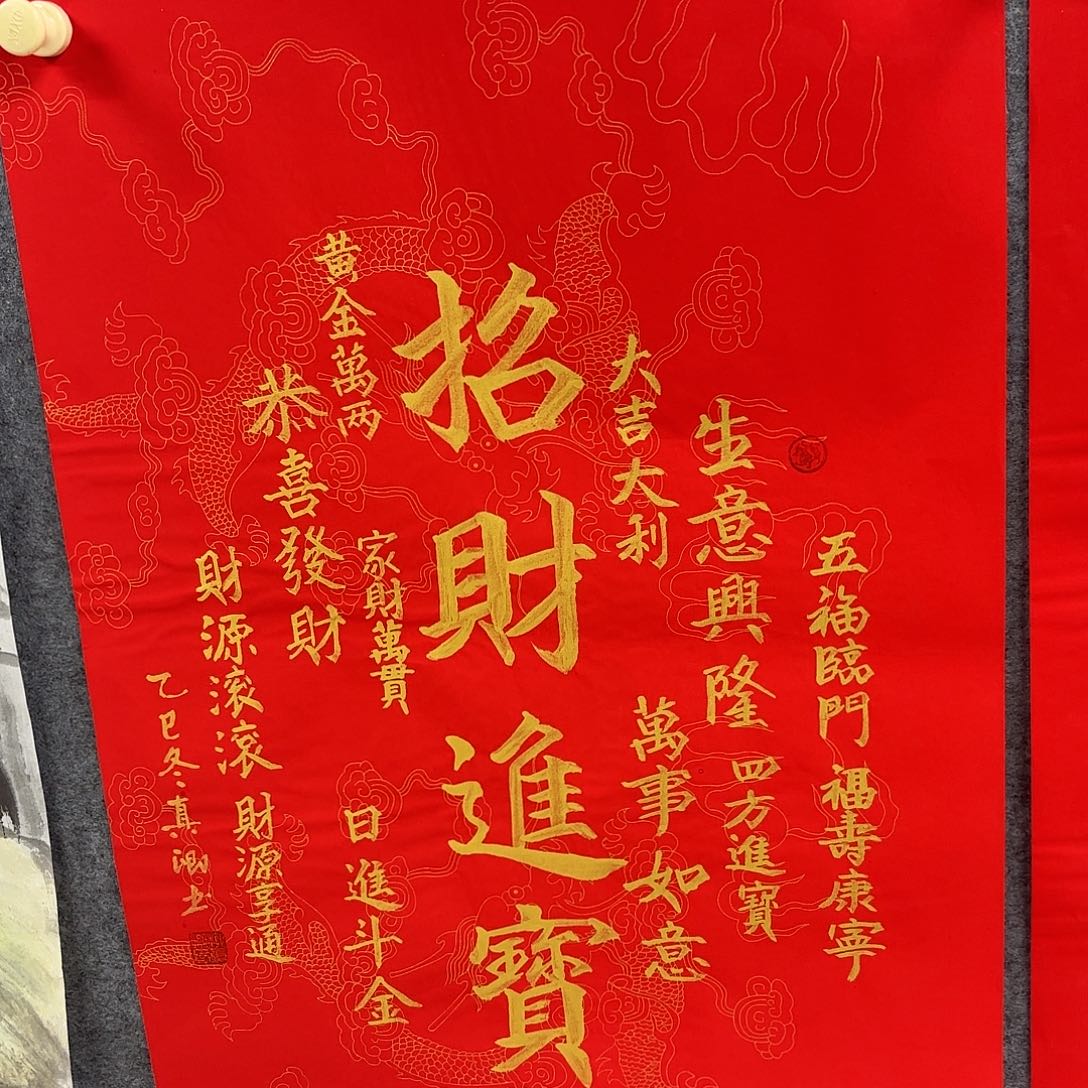 五福臨門
福壽康寧
生意興隆
四方進寶
大吉大利
萬事如意
招財進寶
黄金萬两
家財萬貫
日進斗金
恭喜發財
財源滚滚
財源享通
乙巳冬真卿书